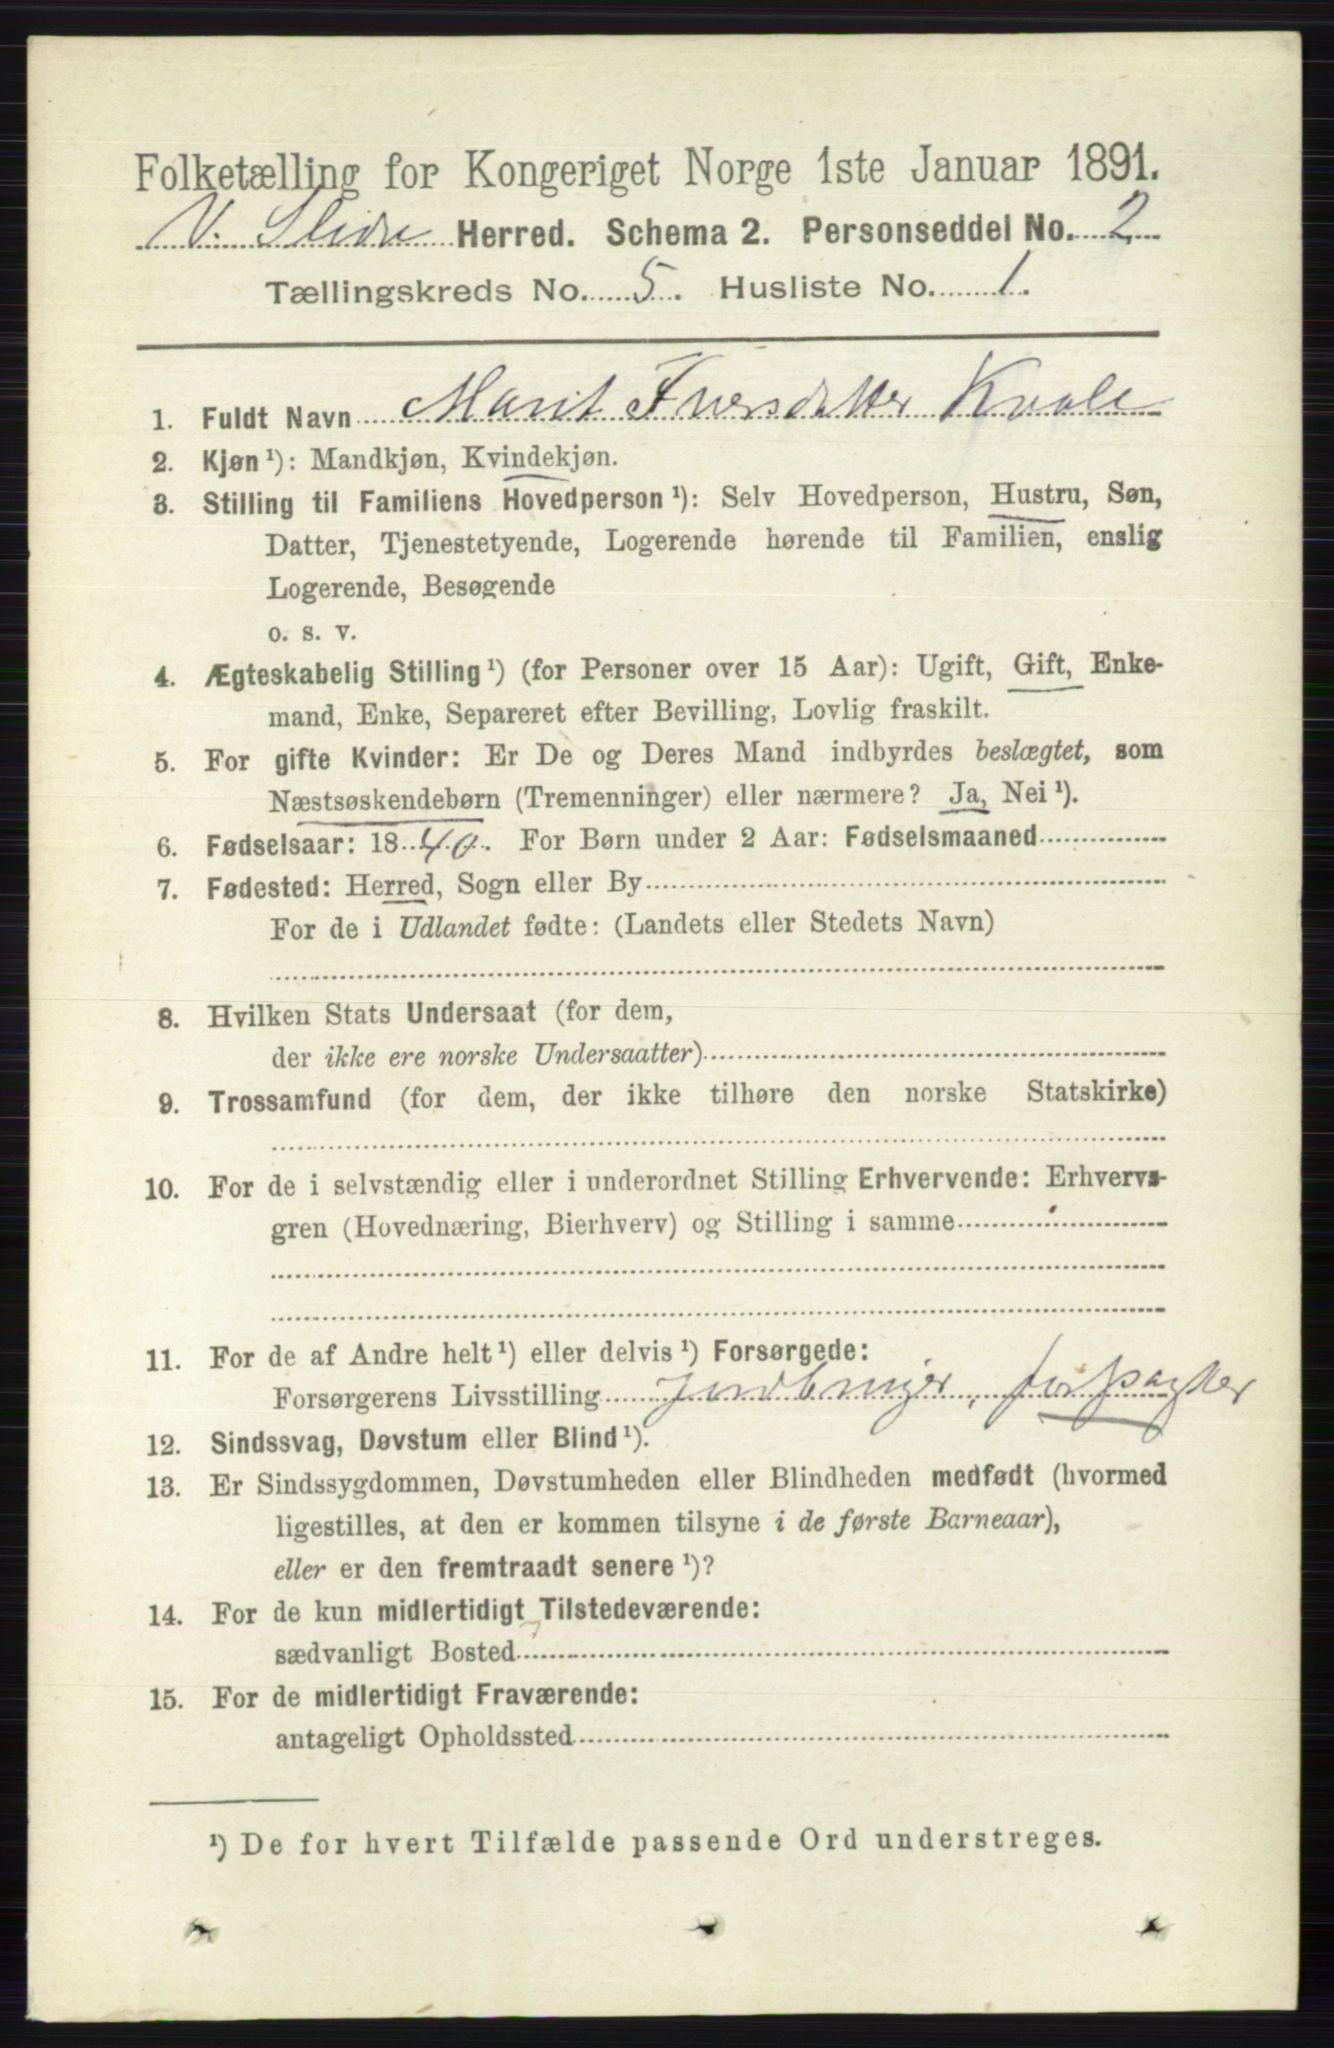 Folketælling for Kongeriget Norge 1ste Januar 1891.
V. Slidre Herred. Schema 2. Personseddel No. 2
Tællingskreds No. 5. Husliste No. 1.
1. Fuldt Navn Marit Iversdatter Kvale
2. Kjøn ¹): Mandkjøn, Kvindekjøn.
3. Stilling til Familiens Hovedperson ¹): Selv Hovedperson, Hustru, Søn,
Datter, Tjenestetyende, Logerende hørende til Familien, enslig
Logerende, Besøgende
o. s. v.
4. Ægteskabelig Stilling ¹) (for Personer over 15 Aar): Ugift, Gift, Enke-
mand, Enke, Separeret efter Bevilling, Lovlig fraskilt.
5. For gifte Kvinder: Er De og Deres Mand indbyrdes beslægtet, som
Næstsøskendebørn (Tremenninger) eller nærmere? Ja, Nei ¹).
6. Fødselsaar: 1840. For Børn under 2 Aar: Fødselsmaaned
7. Fødested: Herred, Sogn eller By
For de i Udlandet fødte: (Landets eller Stedets Navn)
8. Hvilken Stats Undersaat (for dem,
der ikke ere norske Undersaatter)
9. Trossamfund (for dem, der ikke tilhøre den norske Statskirke)
10. For de i selvstændig eller i underordnet Stilling Erhvervende: Erhvervs-
gren (Hovednæring, Bierhverv) og Stilling i samme
11. For de af Andre helt ¹) eller delvis ¹) Forsørgede:
Forsørgerens Livsstilling Jordbruger, forpagter
12. Sindssvag, Døvstum eller Blind ¹).
13. Er Sindssygdommen, Døvstumheden eller Blindheden medfødt (hvormed
ligestilles, at den er kommen tilsyne i de første Barneaar),
eller er den fremtraadt senere ¹)?
14. For de kun midlertidigt Tilstedeværende:
sædvanligt Bosted
15. For de midlertidigt Fraværende:
antageligt Opholdssted
¹) De for hvert Tilfælde passende Ord understreges.